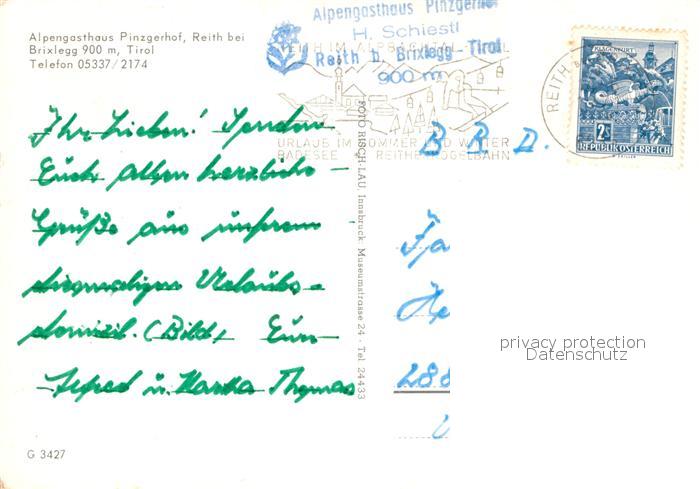 Alpengasthaus Pinzgerhof, Reith bei
Brixlegg 900 m, Tirol
Telefon 05337/2174
Alpengasthaus Pinzgerhof
H. Schiestl
Reith b. Brixlegg - Tirol
900 m
REITH IM ALPBACHTAL
URLAUB IM SOMMER UND WINTER
BADESEE REITHER KOGELBAHN
REITH
KLAGENFURT
2 S
REPUBLIK ÖSTERREICH
Ihr Lieben! Senden
Euch allen herzliche
Grüße aus unserem
diesmaligen Urlaubs-
domizil. (Bild) Eure
Alfred u. Martha Thomas
FOTO RISCH-LAU, Innsbruck, Museumstrasse 24 - Tel. 24433
B R D.
Fa
He
288
privacy protection
Datenschutz
G 3427